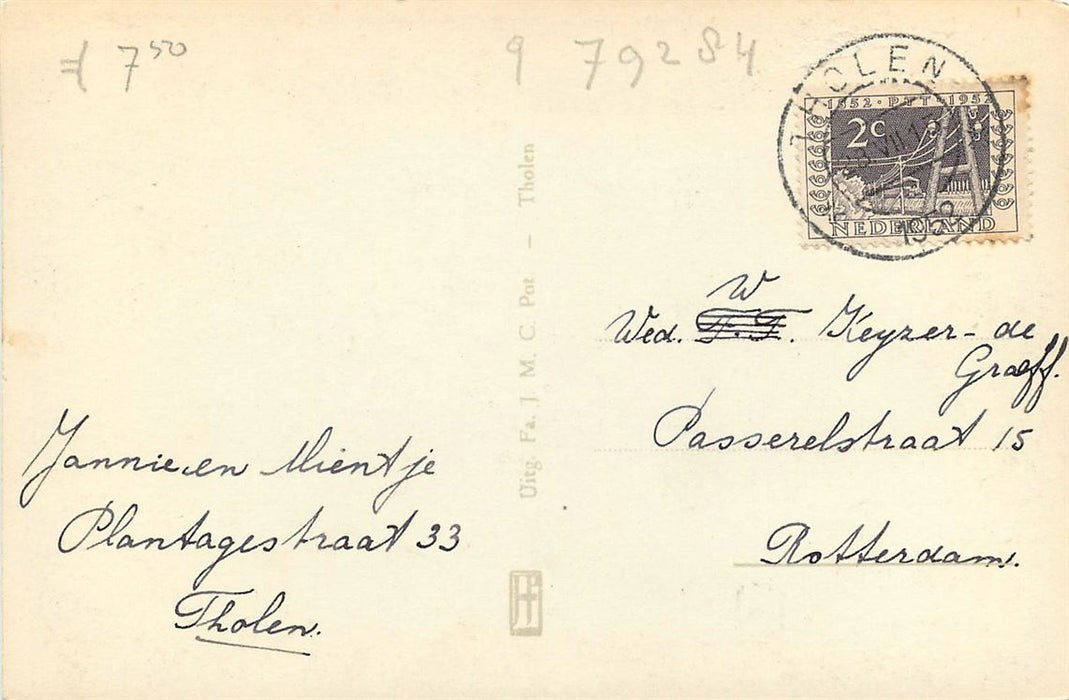 7⁵⁰
9 79284
THOLEN
1952
1852·PTT·1952
2c
NEDERLAND
Uitg. Fa. J. M. C. Pot – Tholen
W
Wed. F.F. Keyzer-de
Graeff.
Passerelstraat 15
Rotterdam.
Jannie en Mientje
Plantagestraat 33
Tholen.